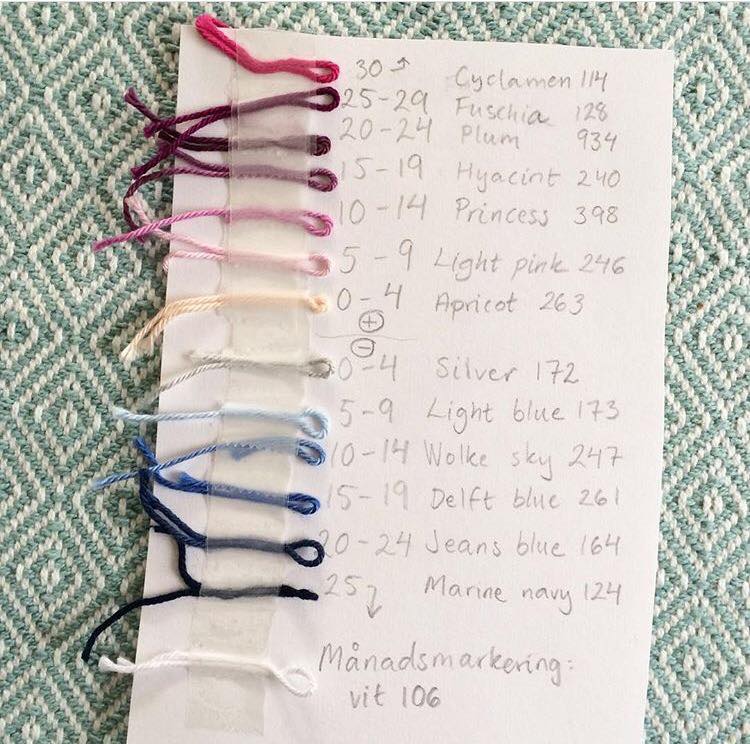 30 ↗ Cyclamen 114
25-29 Fuschia 128
20-24 Plum 934
15-19 Hyacint 240
10-14 Princess 398
5-9 Light pink 246
0-4 Apricot 263
+
-
0-4 Silver 172
5-9 Light blue 173
10-14 Wolke sky 247
15-19 Delft blue 261
20-24 Jeans blue 164
25 ↓ Marine navy 124
Månadsmarkering:
vit 106